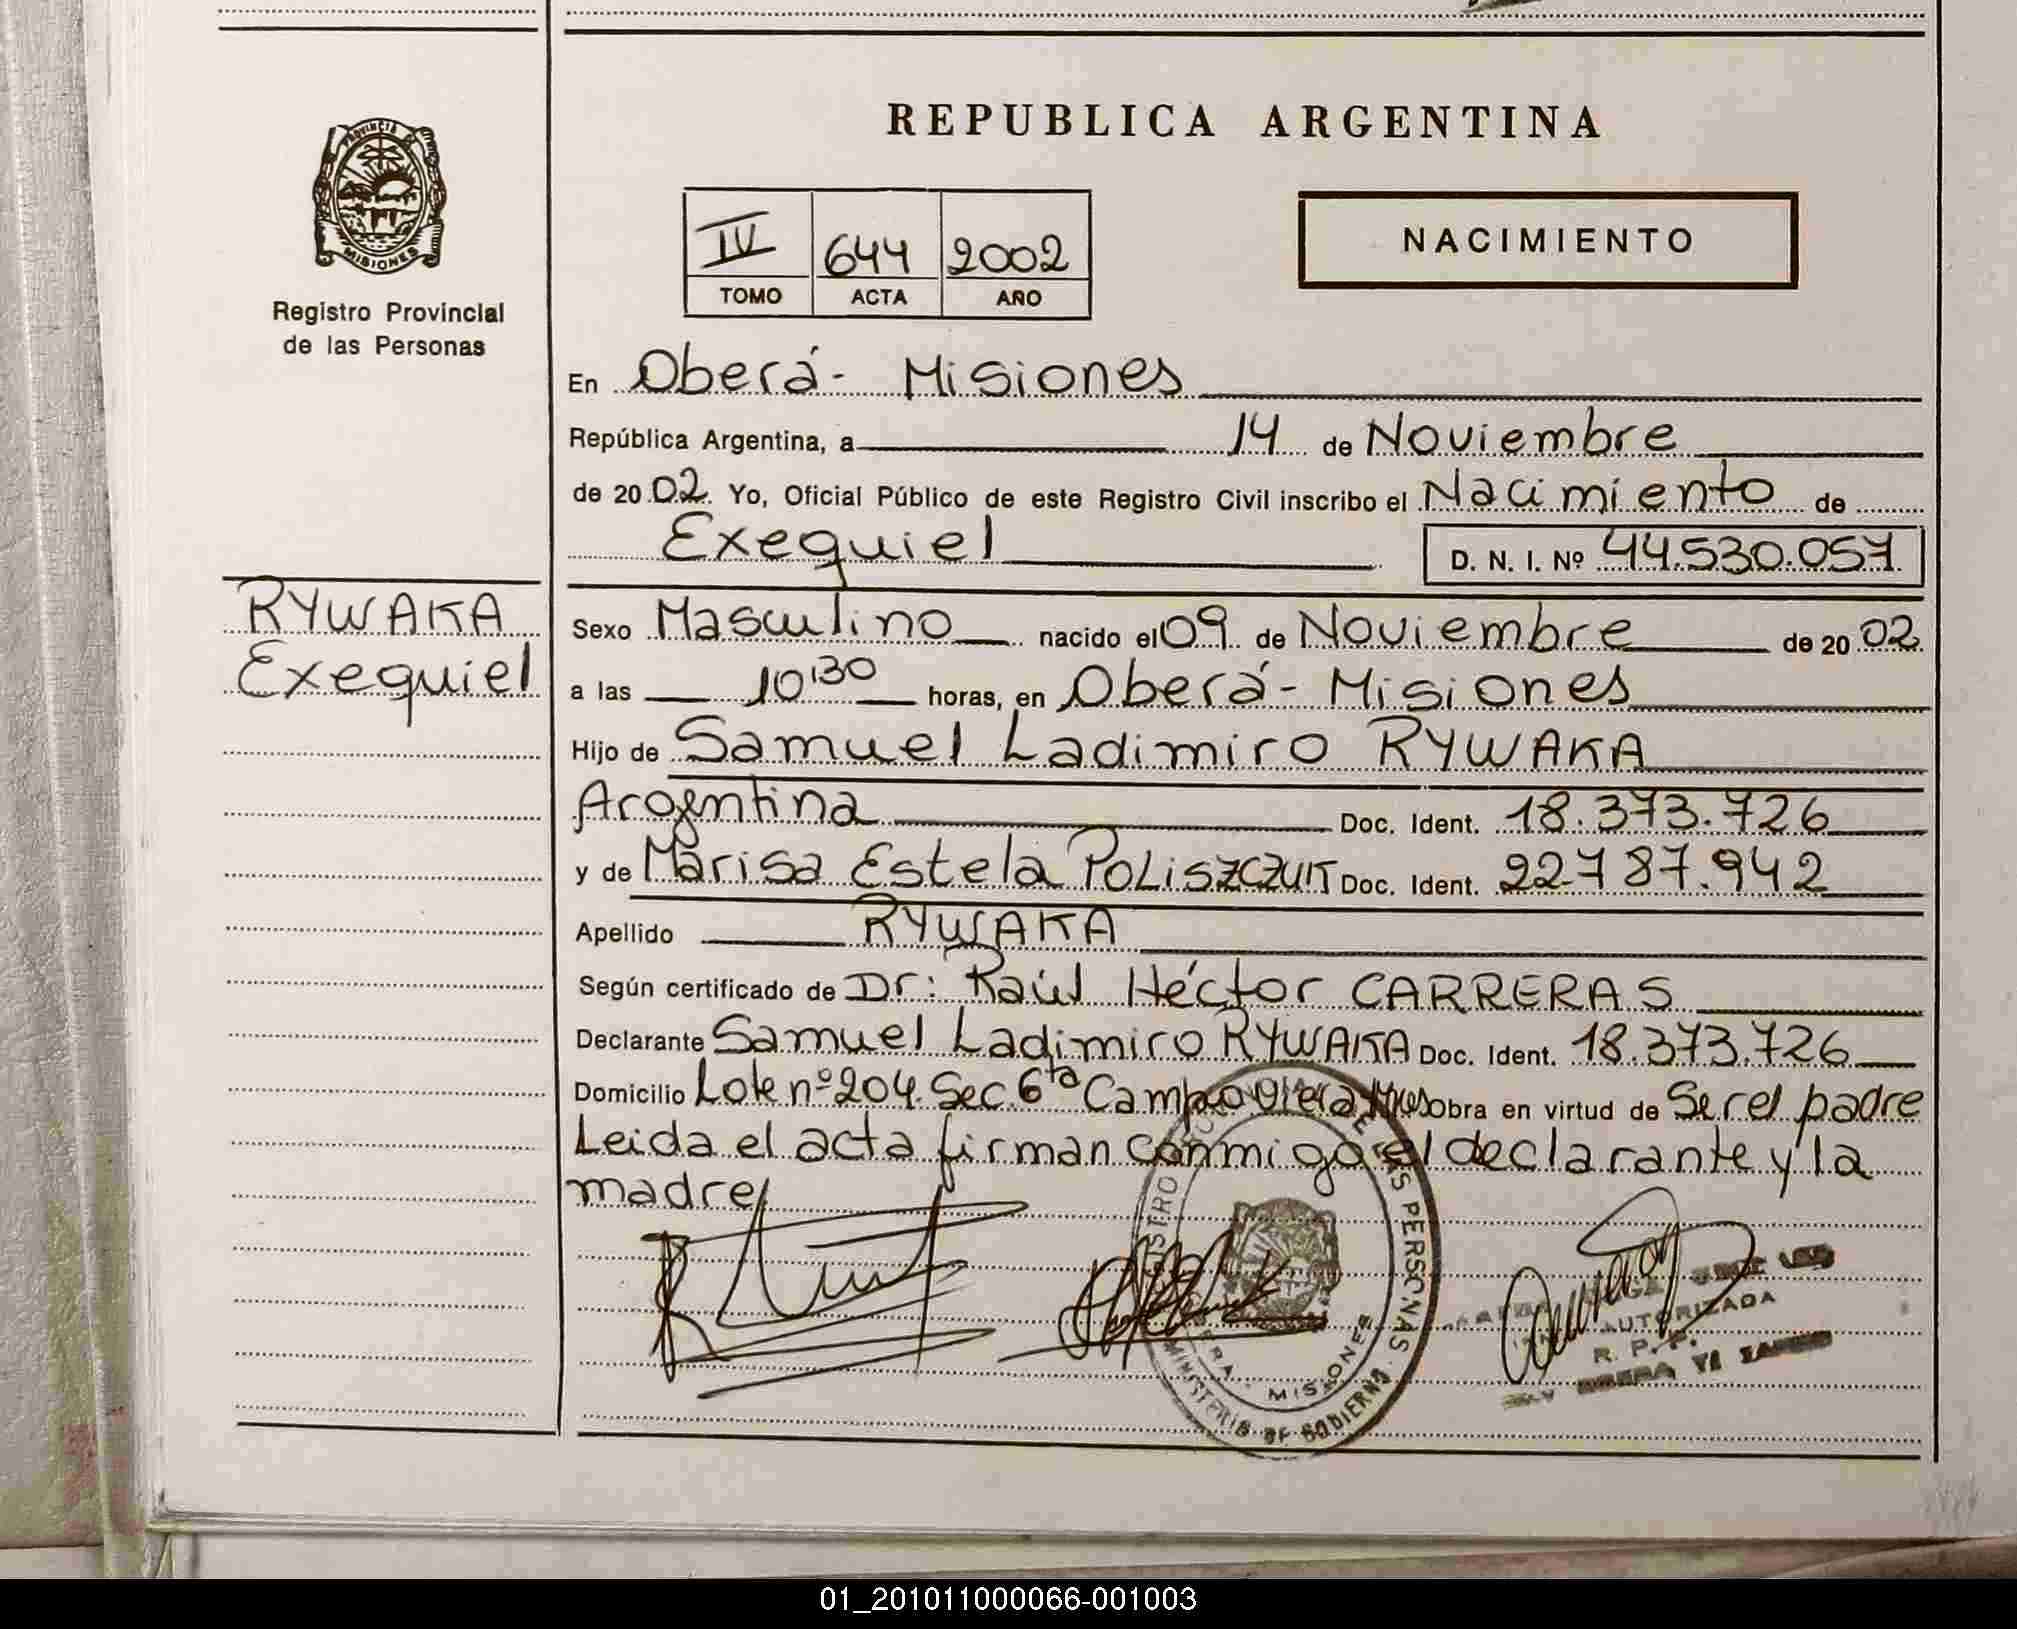 REPUBLICA ARGENTINA
PROVINCIA DE
MISIONES
Registro Provincial
de las Personas
IV 644 2002
TOMO ACTA AÑO
NACIMIENTO
En Oberá - Misiones
República Argentina, a 14 de Noviembre
de 2002 Yo, Oficial Público de este Registro Civil inscribo el Nacimiento de
Exequiel D. N. I. Nº 44.530.057
RYWAKA
Exequiel
Sexo Masculino nacido el 09 de Noviembre de 2002
a las 10:30 horas, en Oberá - Misiones
Hijo de Samuel Ladimiro RYWAKA
Argentina Doc. Ident. 18.373.726
y de Marisa Estela POLISZCZUK Doc. Ident. 22.787.942
Apellido RYWAKA
Según certificado de Dr: Raúl Héctor CARRERAS
Declarante Samuel Ladimiro RYWAKA Doc. Ident. 18.373.726
Domicilio Lote nº 204 Sec. 6ta Campo Viera Mnes Obra en virtud de Ser el padre
Leida el acta firman conmigo el declarante y la
madre
PERSONAS
MINISTERIO DE GOBIERNO
MISIONES
AUTORIZADA
R. P. P.
01_201011000066-001003